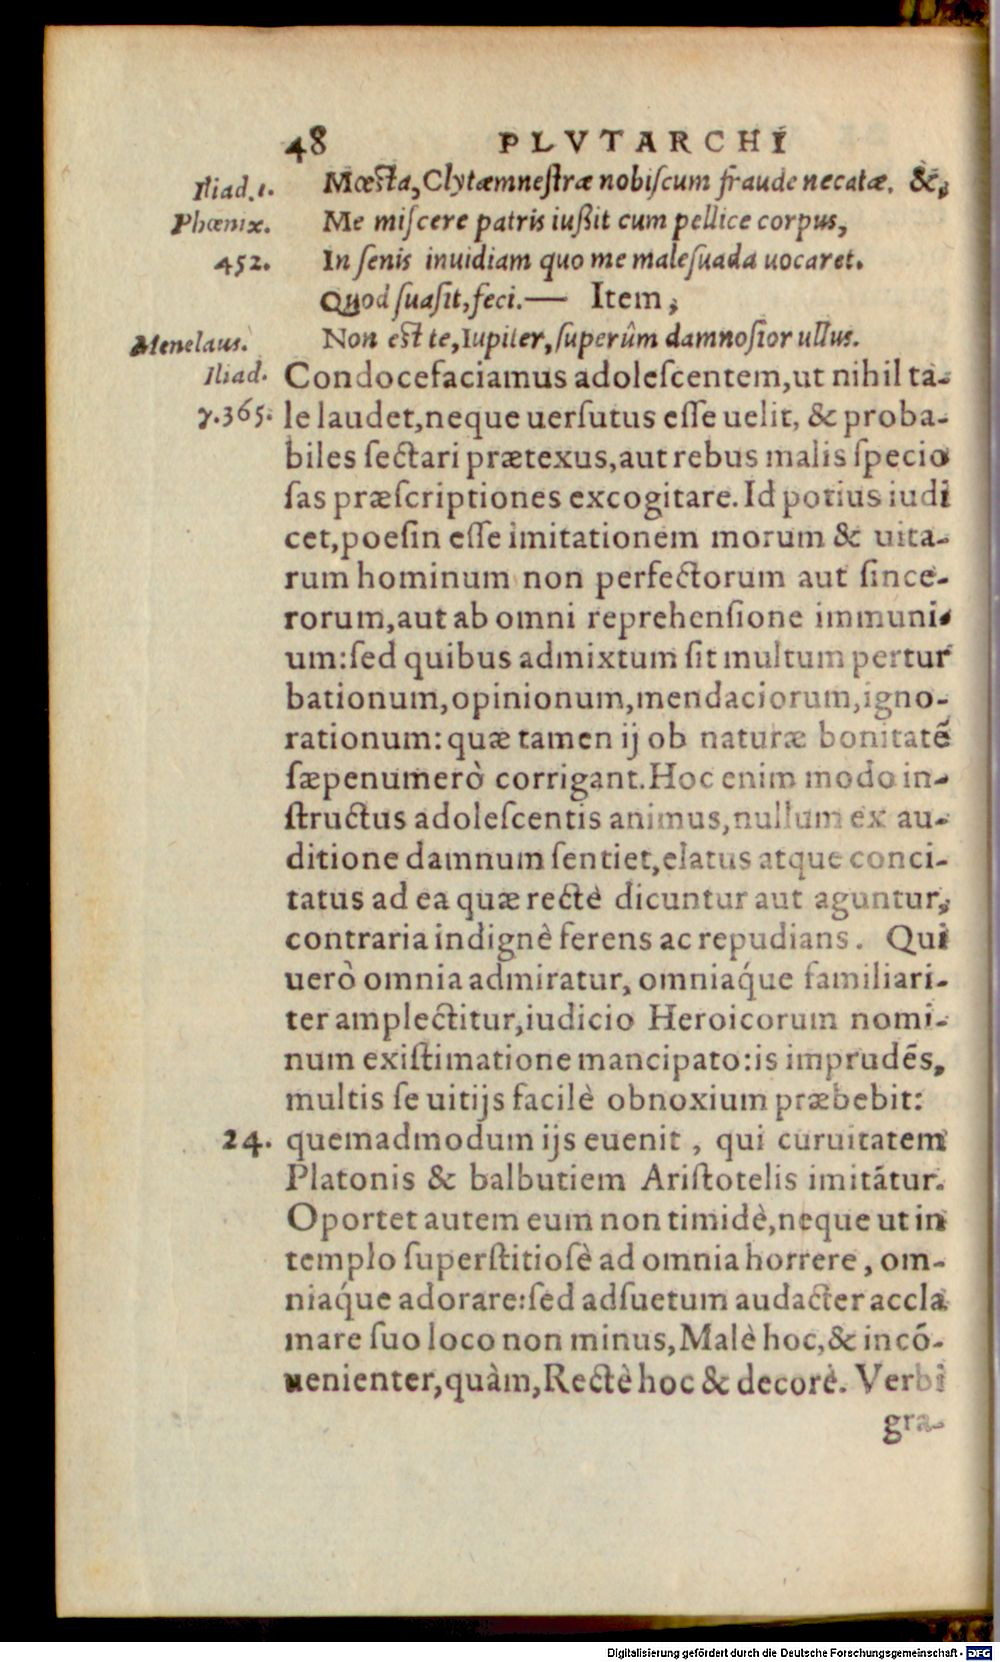 48 PLVTARCHI
Iliad. ι. Mœsta, Clytæmneſtræ nobiſcum fraude necatæ. &,
Phœnix. Me miſcere patris iußit cum pellice corpus,
452. In ſenis inuidiam quo me maleſuada uocaret.
Quod ſuaſit, feci.— Item,
Menelaus. Non est te, Iupiter, ſuperûm damnoſior ullus.
Iliad. Condocefaciamus adoleſcentem, ut nihil ta-
γ.365. le laudet, neque uerſutus eſſe uelit, & proba-
biles ſectari prætexus, aut rebus malis ſpecio
ſas præſcriptiones excogitare. Id potius iudi
cet, poeſin eſſe imitationem morum & uita-
rum hominum non perfectorum aut ſince-
rorum, aut ab omni reprehenſione immuni-
um: ſed quibus admixtum ſit multum pertur
bationum, opinionum, mendaciorum, igno-
rationum: quæ tamen ij ob naturæ bonitatẽ
ſæpenumerò corrigant. Hoc enim modo in-
ſtructus adoleſcentis animus, nullum ex au-
ditione damnum ſentiet, elatus atque conci-
tatus ad ea quæ rectè dicuntur aut aguntur,
contraria indignè ferens ac repudians. Qui
uerò omnia admiratur, omniaq́ue familiari-
ter amplectitur, iudicio Heroicorum nomi-
num exiſtimatione mancipato: is imprudẽs,
multis ſe uitijs facilè obnoxium præbebit:
24. quemadmodum ijs euenit, qui curuitatem
Platonis & balbutiem Ariſtotelis imitãtur.
Oportet autem eum non timidè, neque ut in
templo ſuperſtitioſè ad omnia horrere, om-
niaq́ue adorare: ſed adſuetum audacter accla
mare ſuo loco non minus, Malè hoc, & incõ-
uenienter, quàm, Rectè hoc & decorè. Verbi
gra-
Digitalisierung gefördert durch die Deutsche Forschungsgemeinschaft - DFG